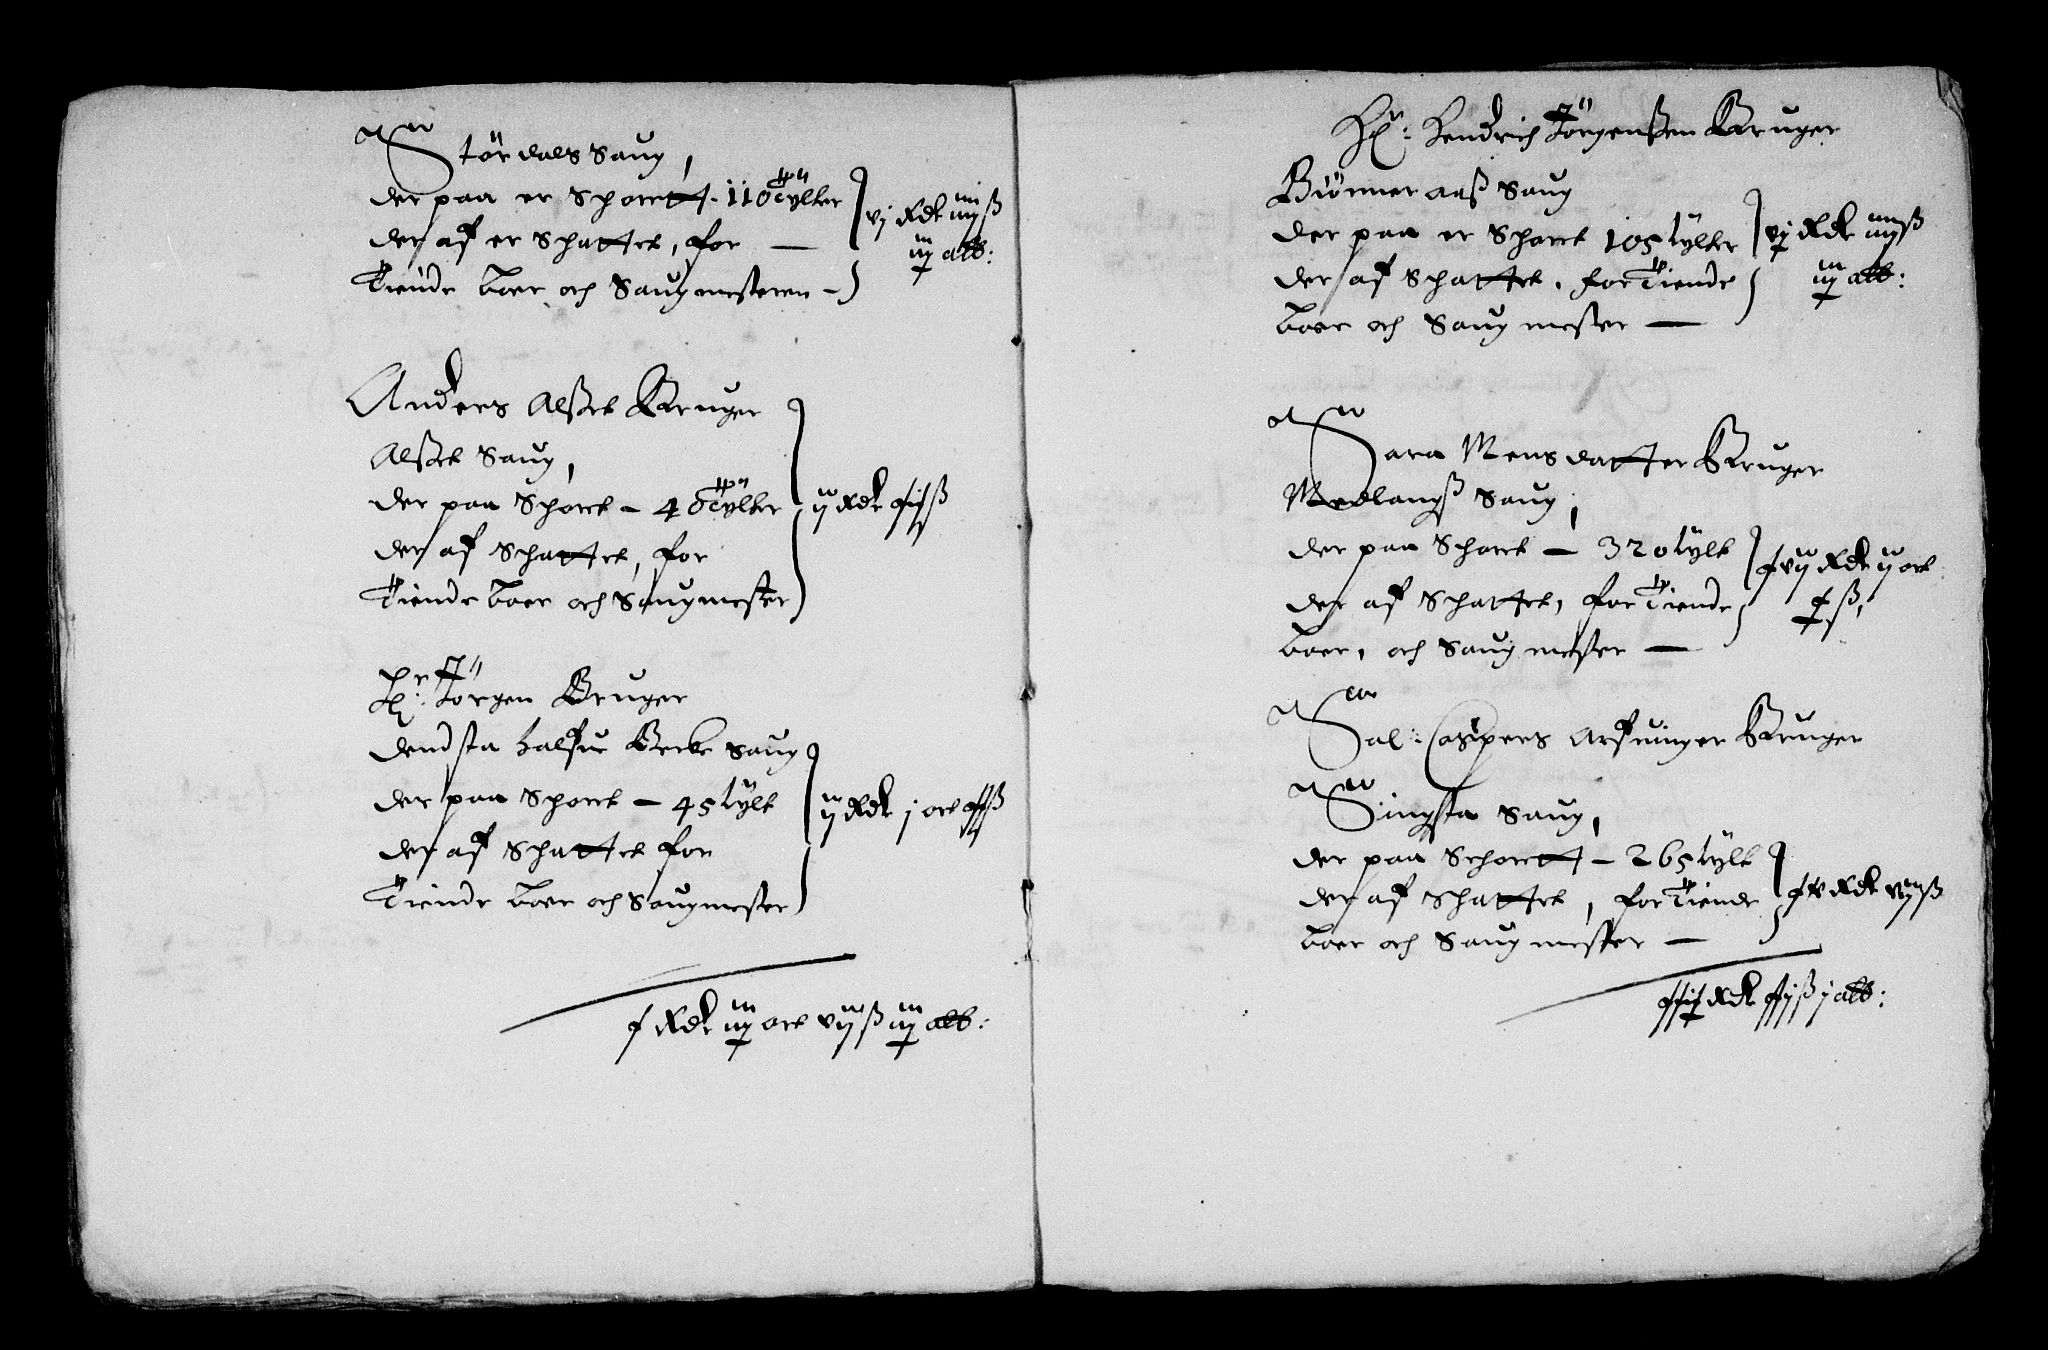 Stördals Saug,
der paa er Schorett - 110 Tÿlter
der af er Schattet, for —
Tiende boer och Saugmesteren -
vj Rdr iiij ß
iij alb:
Anders Alset Bruger
Alset Saug,
der paa Schoret - 40 Tÿlter
der af Schattet, for
Tiende boer och Saugmester
ij Rdr
Hr: Jörgen Bruger
dend sta halfue Becke Saug
der paa Schoret - 45 tÿlt
der af Schattet for
Tiende boer och Saugmester
ij Rdr j ort
Rdr iij ort vij ß iij alb:
Hr: Hendrich Jörgenßen Bruger
Saug
der paa er Schoret 105 tÿlter
der af Schattet, for Tiende
boer och Saug mester —
vj Rdr iiij ß
iij alb:
Sara Mensdatter Bruger
Medlangß Saug,
der paa Schoret — 320 tÿlt
der af Schattet, for Tiende
boer, och Saug mester —
xvij Rdr ij ort
x ß,
Sal: Caspers Arfuinger Bruger
Singsta Saug,
der paa Schorett - 265 tÿlt
der af Schattet, for Tiende
boer och Saug mester —
Rdr ß
Rdr ß j alb: